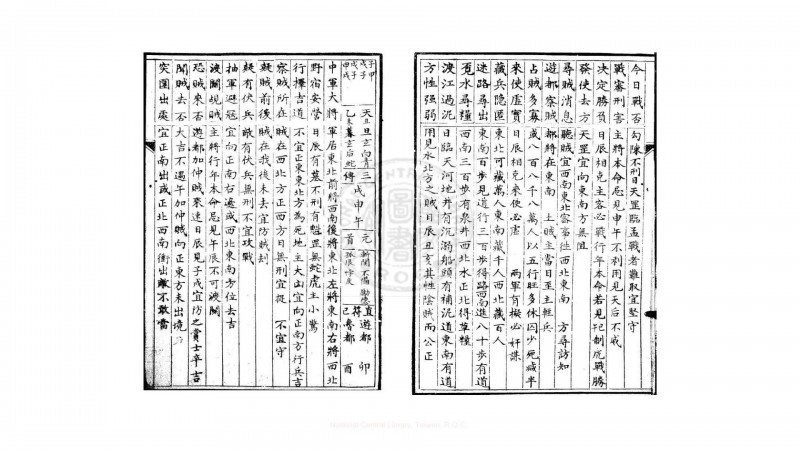 今日戰否 勾陳不刑日天罡臨孟戰者難取宜堅守
戰審刑害 主將本命忌見申午不剋用見天后不戒
決定勝負 日辰相克主客必戰行年本命若見扼制虎戰勝
發使去方 天罡宜向東南方無阻
尋賊消息 聽賊宜西南東北客事往西北東南 方尋訪知
遊都察賊 都將在東南 土賊主當日至主輕兵
占賊多寡 或八百八千八萬人以五行旺多休囚少死減半
來使虛實 日辰相克來使必虛 兩軍有擬必奸謀
藏兵隱匿 東北可藏萬人東南藏千人西北藏百人
迷路尋出 東南百步見道行三百步得路西南進八十步有道
覓水尋糧 西南三百步有泉井西北水正北得草糧
渡江過汎 日臨天河地井有沉溺船頭有補汎道東南有道
方性強弱 用見水北方之賊日辰丑亥其性陰賊而公正
子 甲
戊 子
甲 戌
天乙旦玄向青三 戌申午 元
乙未暮玄后蛇傳 首
直遊都 卯
符
已魯都 酉
中軍大將 軍居東北前將西南後將東北左將東南右將西北
野宿安營 日辰有墓不刑有魁罡無蛇虎主小驚
行擇吉道 不宜正東東北方為死地主大凶宜向正南方行兵吉
察賊所在 賊在西北方正西方日無刑宜捉 不宜守
疑賊前後 賊在我後未去宜防賊刦
疑有伏兵 敵有伏兵無刑不宜攻戰
抽軍避寇 宜向正南右邊或西北東南方位去吉
渡關覘賊 主將行年本命忌見午辰不可渡關
恐賊來否 遊都加仲賊來速日辰見子戌宜防之賞士卒吉
聞賊去否 大吉不遇午加仲賊向正東方未出境
突圍出處 宜正南出或正北西南衝出敵不敢當